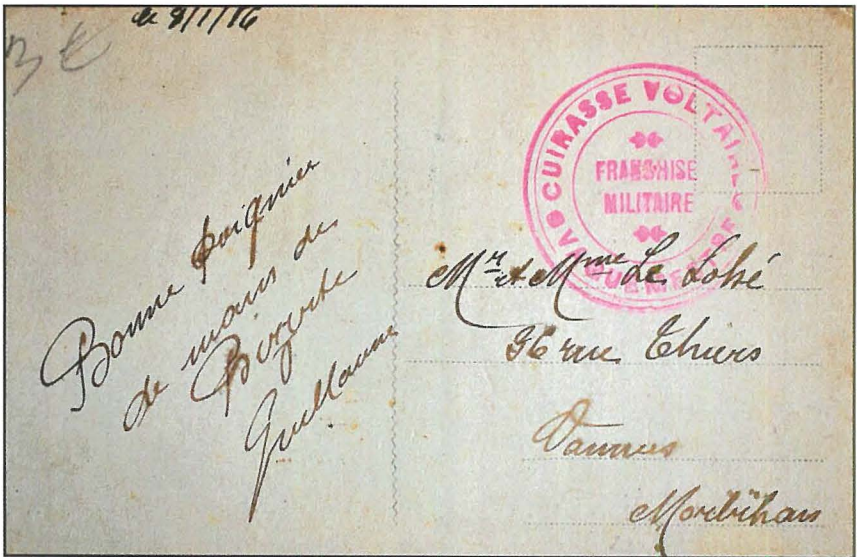 le 9/1/16
3 €
Bonne Poignier
de main de
Bizerte
Guillaume
CUIRASSE VOLTAIRE
FRANCHISE
MILITAIRE
Mr et Mme Le Lohé
36 rue Thiers
Vannes
Morbihan